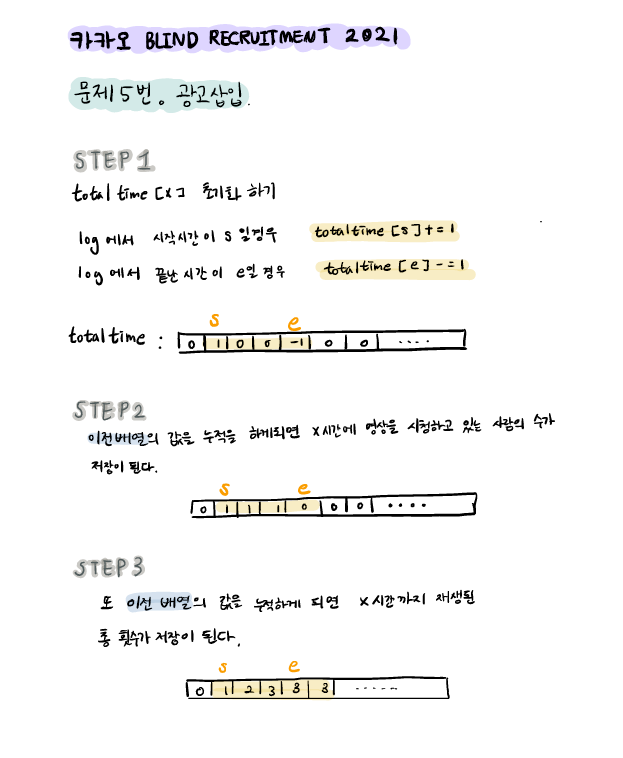 카카오 BLIND RECRUITMENT 2021
문제 5번. 광고삽입.
STEP 1
total time [x] 초기화 하기
log에서 시작시간이 s 일경우 totaltime [s] += 1
log에서 끝난 시간이 e일 경우 totaltime [e] -= 1
s e
total time : 0 1 0 0 -1 0 0 ....
STEP2
이전배열의 값을 누적을 하게되면 x시간에 영상을 시청하고 있는 사람의 수가
저장이 된다.
s e
0 1 1 1 0 0 0 ....
STEP 3
또 이전 배열의 값을 누적하게 되면 x시간까지 재생된
총 횟수가 저장이 된다.
s e
0 1 2 3 3 3 ......